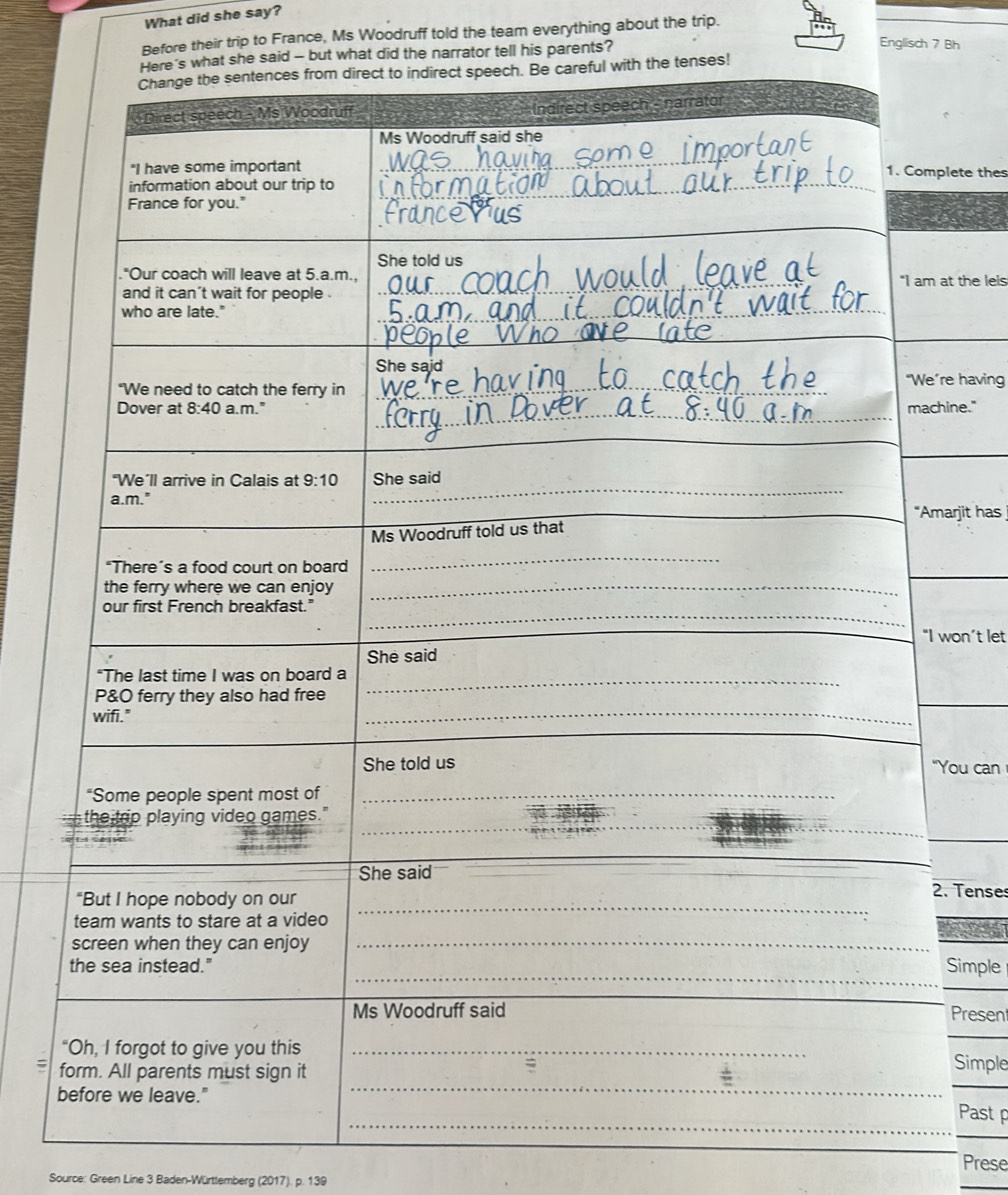 What did she say?
Before their trip to France, Ms Woodruff told the team everything about the trip.
Here´s what she said – but what did the narrator tell his parents?
Change the sentences from direct to indirect speech. Be careful with the tenses!
Direct speech - Ms Woodruff
Indirect speech - narrator
"I have some important
information about our trip to
France for you."
Ms Woodruff said she
was having some important
information about our trip to
france for us
"Our coach will leave at 5.a.m.,
and it can´t wait for people
who are late."
She told us
our coach would leave at
5.am, and it couldn't wait for
people who are late
"We need to catch the ferry in
Dover at 8:40 a.m."
She said
we're having to catch the
ferry in Dover at 8:40 a.m
"We´ll arrive in Calais at 9:10
a.m."
She said
"There´s a food court on board
the ferry where we can enjoy
our first French breakfast."
Ms Woodruff told us that
"The last time I was on board a
P&O ferry they also had free
wifi."
She said
"Some people spent most of
the trip playing video games."
She told us
"But I hope nobody on our
team wants to stare at a video
screen when they can enjoy
the sea instead."
She said
"Oh, I forgot to give you this
form. All parents must sign it
before we leave."
Ms Woodruff said
Source: Green Line 3 Baden-Württemberg (2017). p. 139
Englisch 7 Bh
1. Complete thes
"I am at the leis
"We´re having
machine."
"Amarjit has
"I won´t let
"You can
2. Tenses
Simple
Present
Simple
Past p
Prese